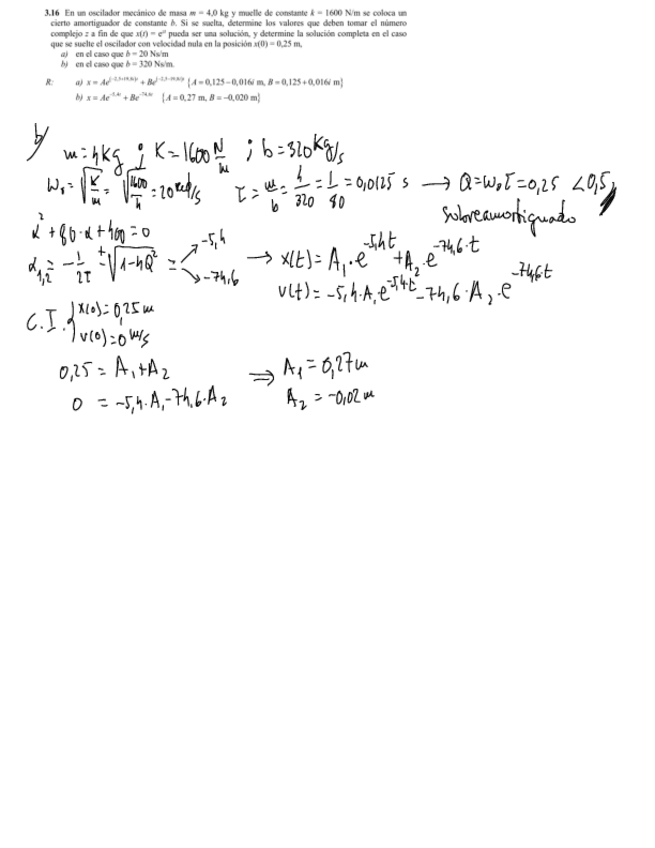 3.16 En un oscilador mecánico de masa m = 4,0 kg y muelle de constante k = 1600 N/m se coloca un
cierto amortiguador de constante b. Si se suelta, determine los valores que deben tomar el número
complejo z a fin de que x(t) = e^{zt} pueda ser una solución, y determine la solución completa en el caso
que se suelte el oscilador con velocidad nula en la posición x(0) = 0,25 m,
a) en el caso que b = 20 Ns/m
b) en el caso que b = 320 Ns/m.
R: a) x = Ae + Be {A = 0,125 – 0,016i m, B = 0,125 + 0,016i m}
b) x = Ae^{-5,4t} + Be^{-74,6t} {A = 0,27 m, B = –0,020 m}
b) m = 4 kg ; K = 1600 N/m ; b = 320 kg/s
W₀ = √(K/m) = √(1600/4) = 20 rad/s τ = m/b = 4/320 = 1/80 = 0,0125 s → Q = W₀τ = 0,25 < 0,5
Sobreamortiguado
α² + 80·α + 400 = 0
α₁,₂ = -1/2τ ± √(1-4Q²) = -5,4 -74,6 → x(t) = A₁·e^{-5,4t} + A₂·e^{-74,6·t}
v(t) = -5,4·A₁·e^{-5,4t} - 74,6·A₂·e^{-74,6t}
C.I. { x(0) = 0,25 m
v(0) = 0 m/s
0,25 = A₁ + A₂ ⇒ A₁ = 0,27 m
0 = -5,4·A₁ - 74,6·A₂ A₂ = -0,02 m